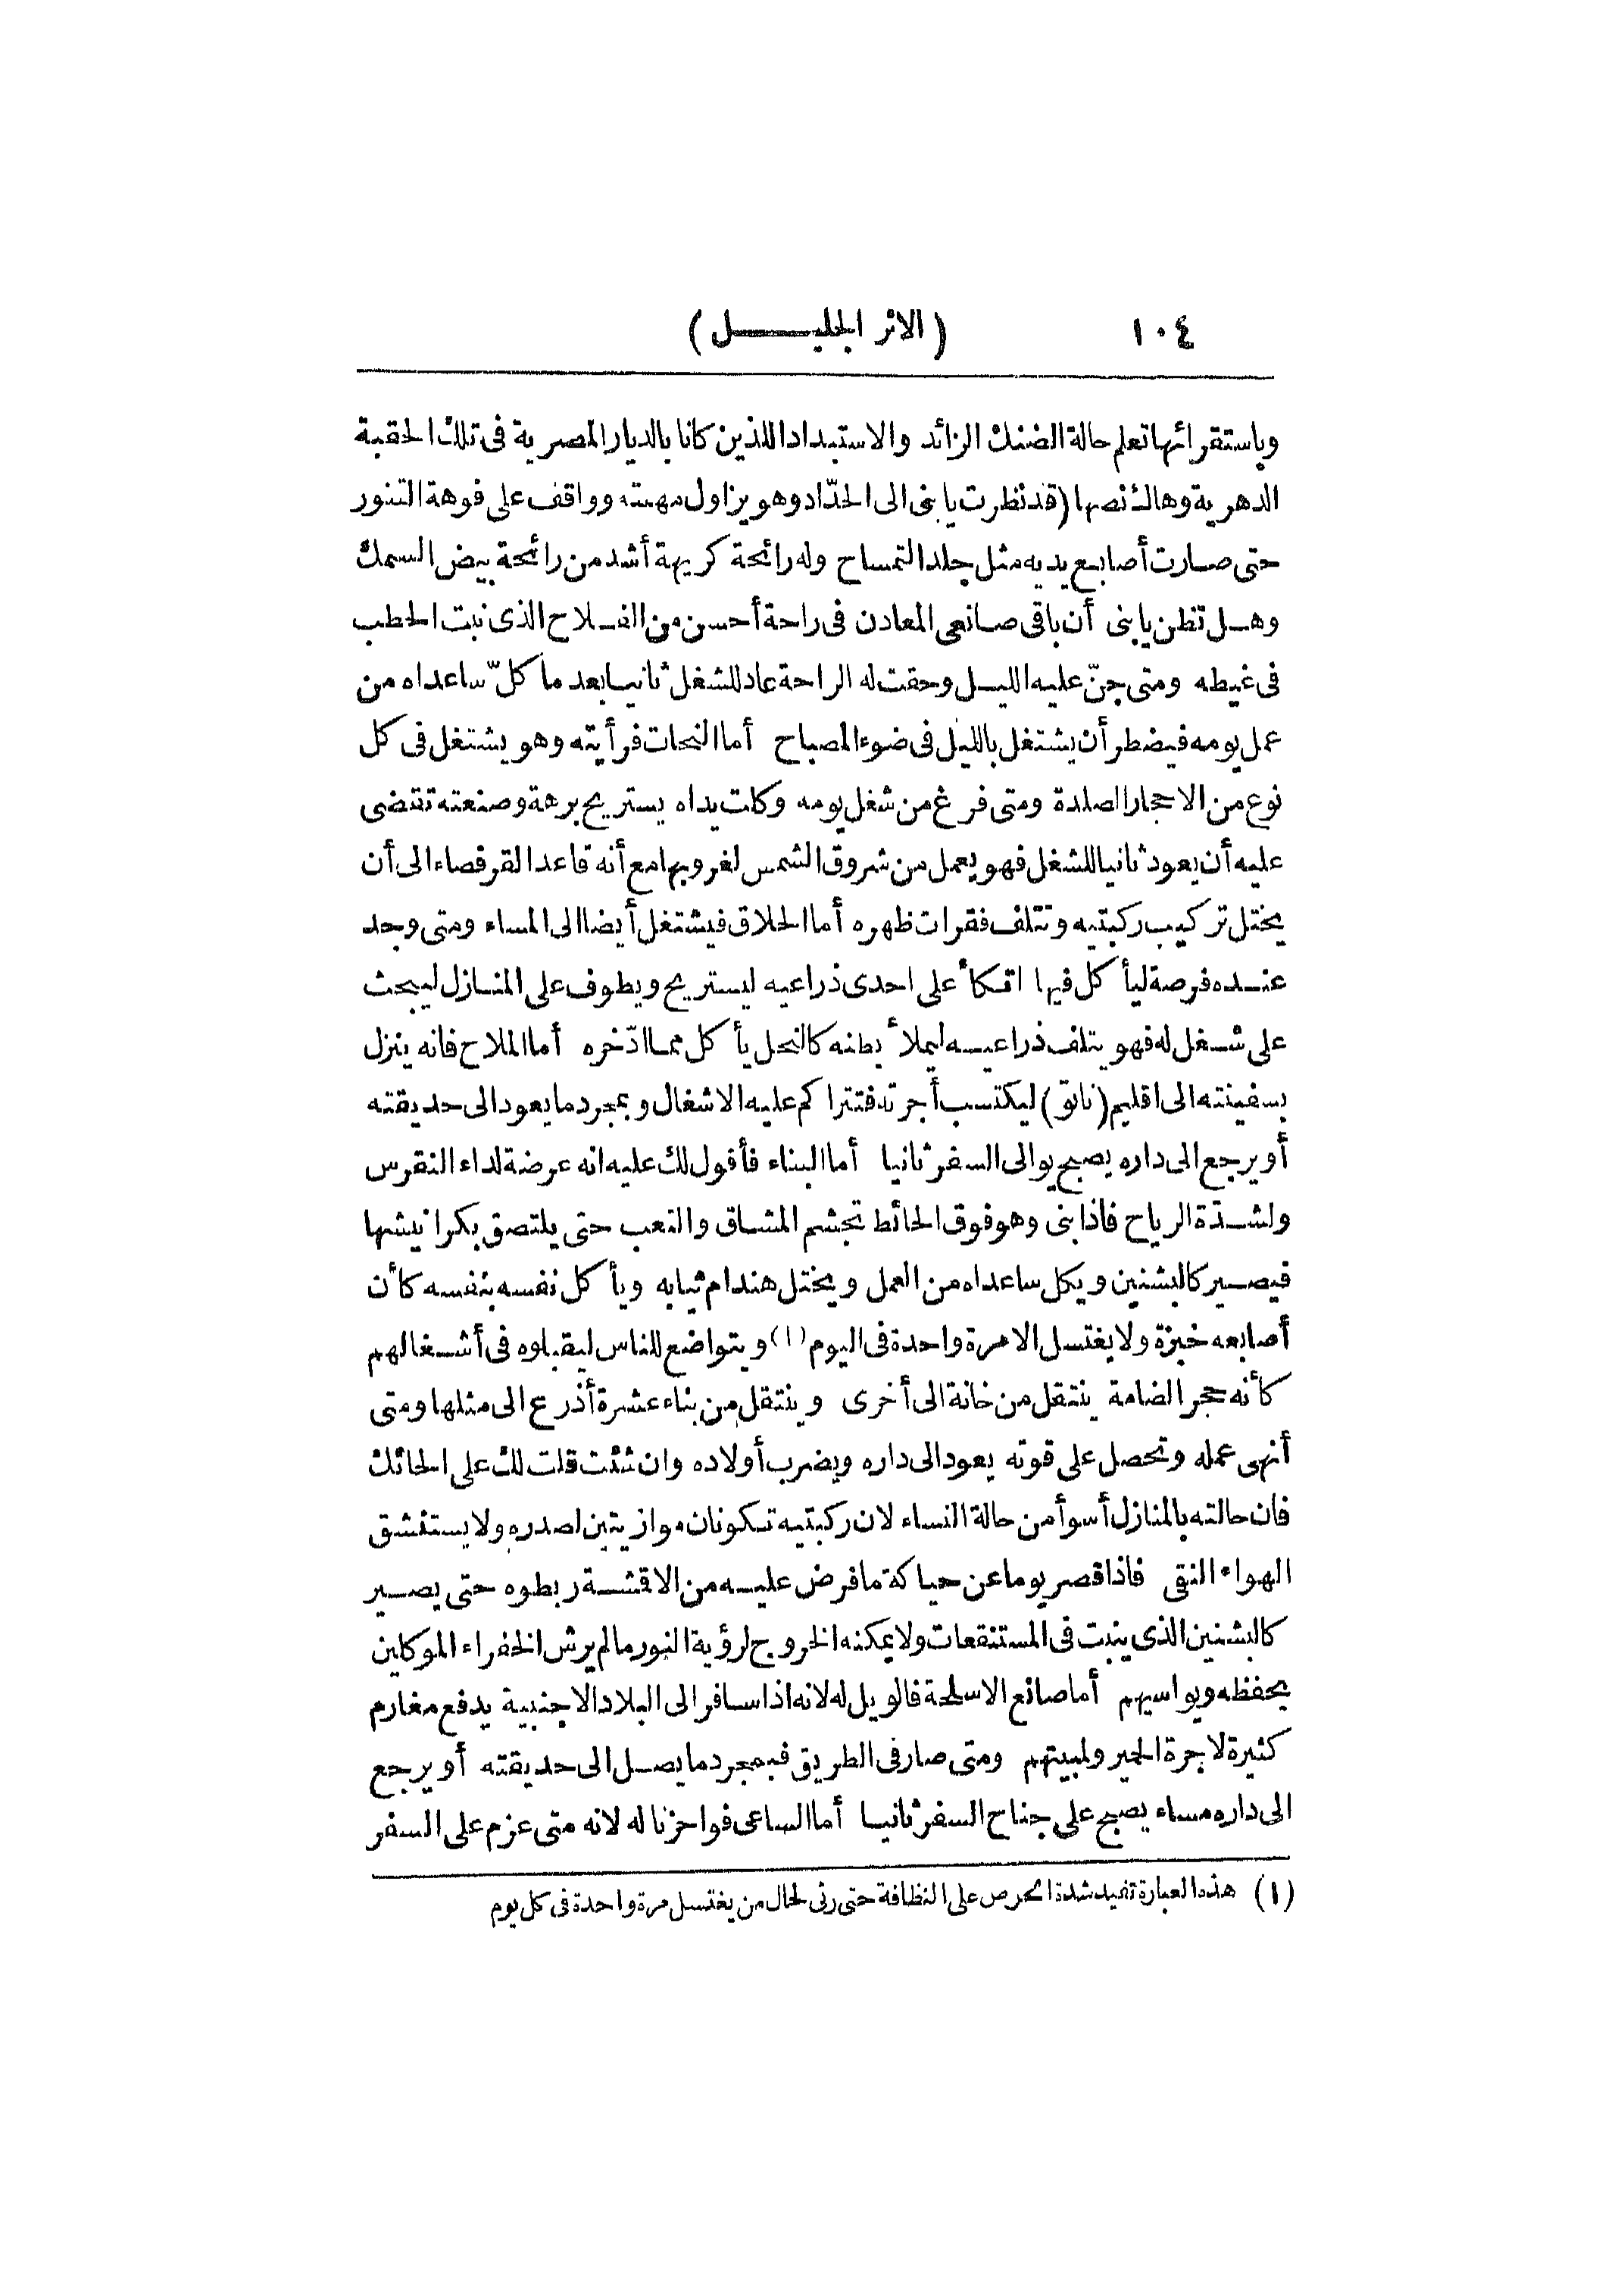 ١٠٤ (الاثر الجليل)
وباستقرائها تعلم حالة الضنك الزائد والاستبداد اللذين كانا بالديار المصرية فى تلك الحقبة
الدهرية وهاك نصها (قد نظرت يا بنى الى الحدّاد وهو يزاول مهنته وواقف على فوهة التنور
حتى صارت أصابع يديه مثل جلد التمساح وله رائحة كريهة أشد من رائحة بيض السمك
وهل تظن يا بنى أن باقى صانعى المعادن فى راحة أحسن من الفلاح الذى نبت الحطب
فى غيطه ومتى جنّ عليه الليل وحقت له الراحة عاد للشغل ثانيا بعد ما كلّ ساعداه من
عمل يومه فيضطر أن يشتغل بالليل فى ضوء المصباح أما النحات فرأيته وهو يشتغل فى كل
نوع من الاحجار الصلدة ومتى فرغ من شغل يومه وكلت يداه يستريح برهة وصنعته تقتضى
عليه أن يعود ثانيا للشغل فهو يعمل من شروق الشمس لغروبها مع أنه قاعد القرفصاء الى أن
يختل تركيب ركبتيه وتتلف فقرات ظهره أما الحلاق فيشتغل أيضا الى المساء ومتى وجد
عنده فرصة ليأكل فيها اتكأ على احدى ذراعيه ليستريح ويطوف على المنازل ليبحث
على شغل له فهو يتلف ذراعيه ليملأ بطنه كالنحل يأكل مما ادّخره أما الملاح فانه ينزل
بسفينته الى اقليم (ناتو) ليكتسب أجرته فتتراكم عليه الاشغال وبمجرد ما يعود الى حديقته
أو يرجع الى داره يصبح يوالى السفر ثانيا أما البناء فأقول لك عليه انه عرضة لداء النقرس
ولشدّة الرياح فاذا بنى وهو فوق الحائط تجشم المشاق والتعب حتى يلتصق بكرانيشها
فيصير كالبشنين ويكل ساعداه من العمل ويختل هندام ثيابه ويأكل نفسه بنفسه كأن
أصابعه خبزة ولا يغتسل الا مرة واحدة فى اليوم (١) ويتواضع للناس ليقبلوه فى أشغالهم
كأنه حجر الضامة ينتقل من خانة الى أخرى وينتقل من بناء عشرة أذرع الى مثلها ومتى
أنهى عمله وتحصل على قوته يعود الى داره ويضرب أولاده وان شئت قلت لك على الحائك
فان حالته بالمنازل أسوأ من حالة النساء لان ركبتيه تكونان موازيتين لصدره ولا يستنشق
الهواء النقى فاذا قصر يوما عن حياكة ما فرض عليه من الاقشة ربطوه حتى يصير
كالبشنين الذى ينبت فى المستنقعات ولا يمكنه الخروج لرؤية النور مالم يرش الخفراء الموكلين
بحفظه ويواسيهم أما صانع الاسلحة فالويل له لانه اذا سافر الى البلاد الاجنبية يدفع مغارم
كثيرة لاجرة الحمير ولمبيتهم ومتى صار فى الطريق فبمجرد ما يصل الى حديقته أو يرجع
الى داره مساء يصبح على جناح السفر ثانيا أما الساعى فواحزنا له لانه متى عزم على السفر
(١) هذه العبارة تفيد شدة الحرص على النظافة حتى رثى لحال من يغتسل مرة واحدة فى كل يوم